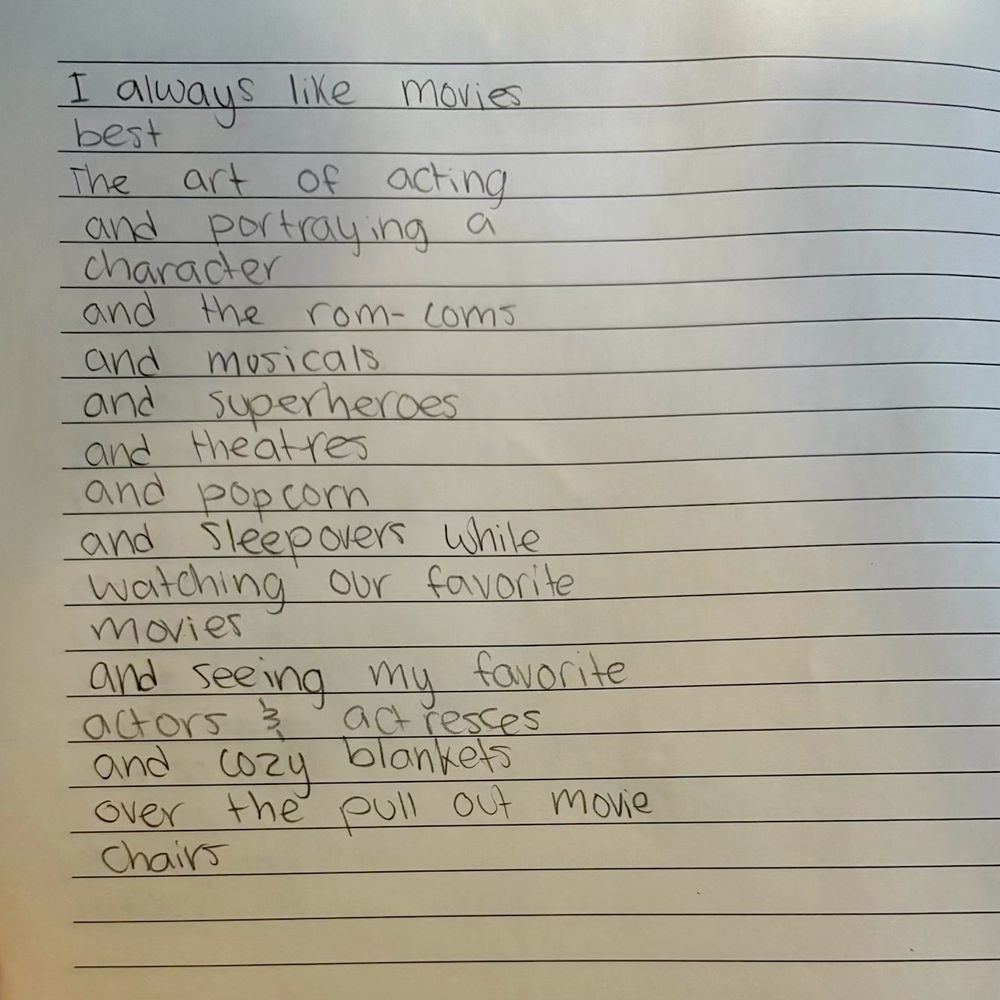 I always like movies
best
The art of acting
and portraying a
character
and the rom-coms
and musicals
and superheroes
and theatres
and popcorn
and sleepovers while
watching our favorite
movies
and seeing my favorite
actors & actresces
and cozy blankets
over the pull out movie
chairs